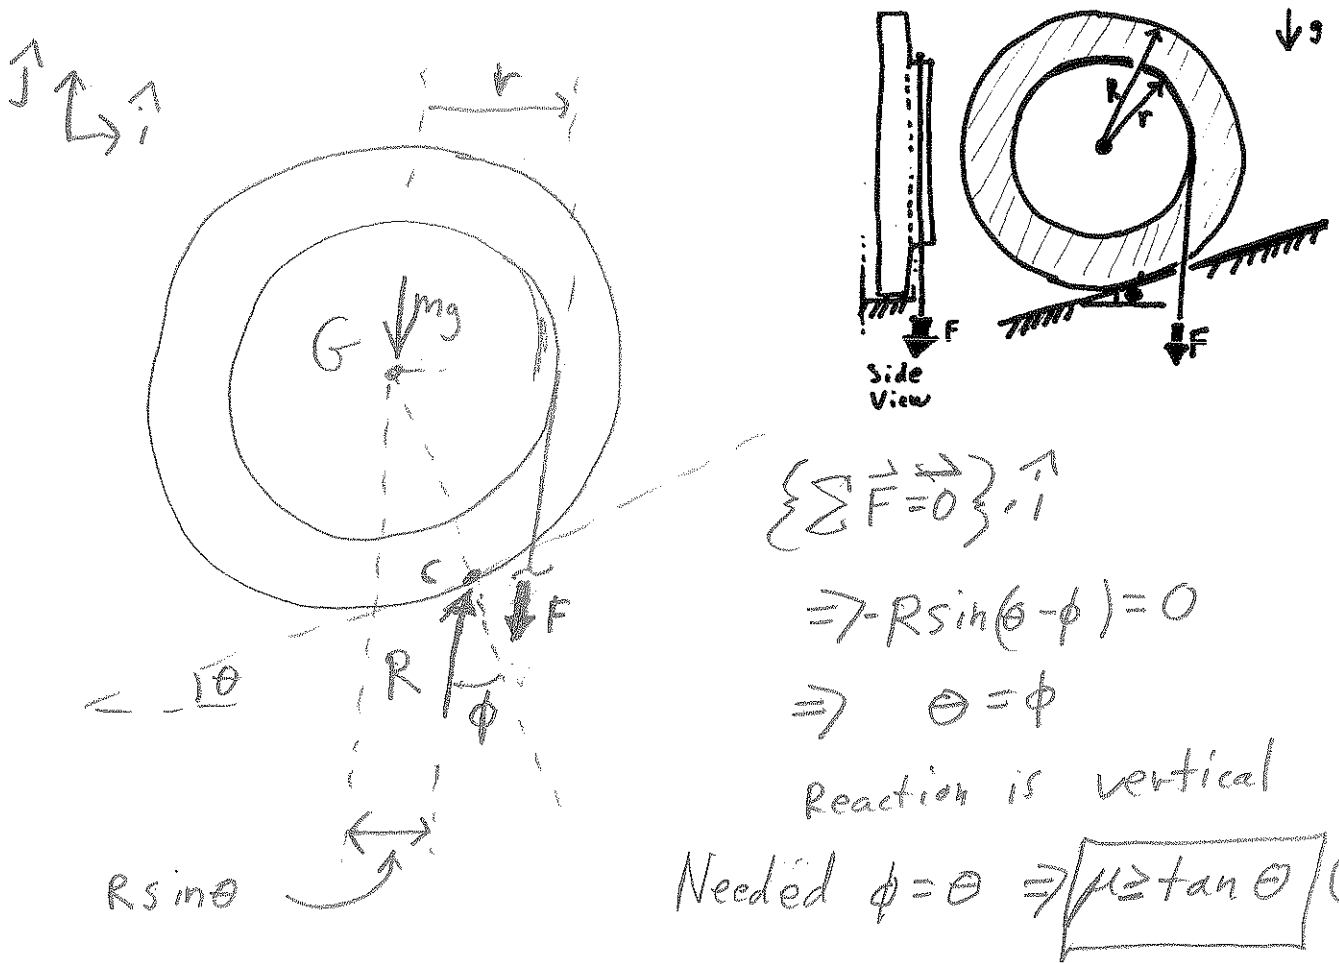 ĵ
î
r
G
mg
C
F
R
ϕ
θ
R sinθ
R
r
g
θ
F
F
Side
View
{∑F⃗ = 0⃗}·î
⇒ -R sin(θ-ϕ) = 0
⇒ θ = ϕ
Reaction is vertical
Needed ϕ = θ ⇒ μ ≥ tan θ (